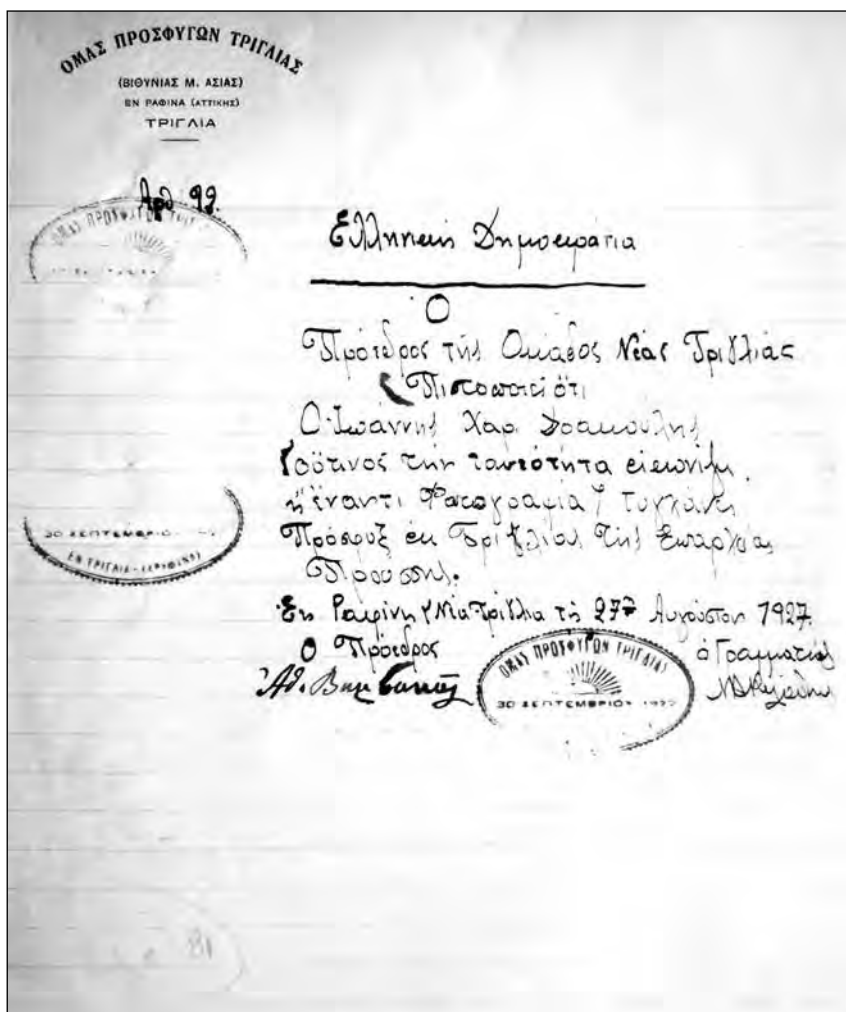 ΟΜΑΣ ΠΡΟΣΦΥΓΩΝ ΤΡΙΓΛΙΑΣ
(ΒΙΘΥΝΙΑΣ Μ. ΑΣΙΑΣ)
ΕΝ ΡΑΦΙΝΑ (ΑΤΤΙΚΗΣ)
ΤΡΙΓΛΙΑ
Αρθ 99.
ΟΜΑΣ ΠΡΟΣΦΥΓΩΝ ΤΡΙΓ
Ελληνική Δημοκρατία
Ο
Πρόεδρος τής Ομάδος Νέας Τριγλίας
Πιστοποιεί ότι
Ο Ιωάννης Χαρ. Δρακούλης
ούτινος την ταυτότητα εικονίζει
η έναντι Φωτογραφία, τυγχάνει
Πρόσφυξ εκ Τριγλίας τής Επαρχίας
Προύσης.
30 ΣΕΠΤΕΜΒΡΙΟΥ
ΕΝ ΤΡΙΓΛΙΑ-(ΡΑΦΗΝΑΣ)
Εν Ραφίνη Νέα Τρίγλια τη 27η Αυγούστου 1927.
Ο Πρόεδρος
ο Γραμματεύς
Αθ.
ΟΜΑΣ ΠΡΟΣΦΥΓΩΝ ΤΡΙΓΛΙΑΣ
30 ΣΕΠΤΕΜΒΡΙΟΥ 1922
81